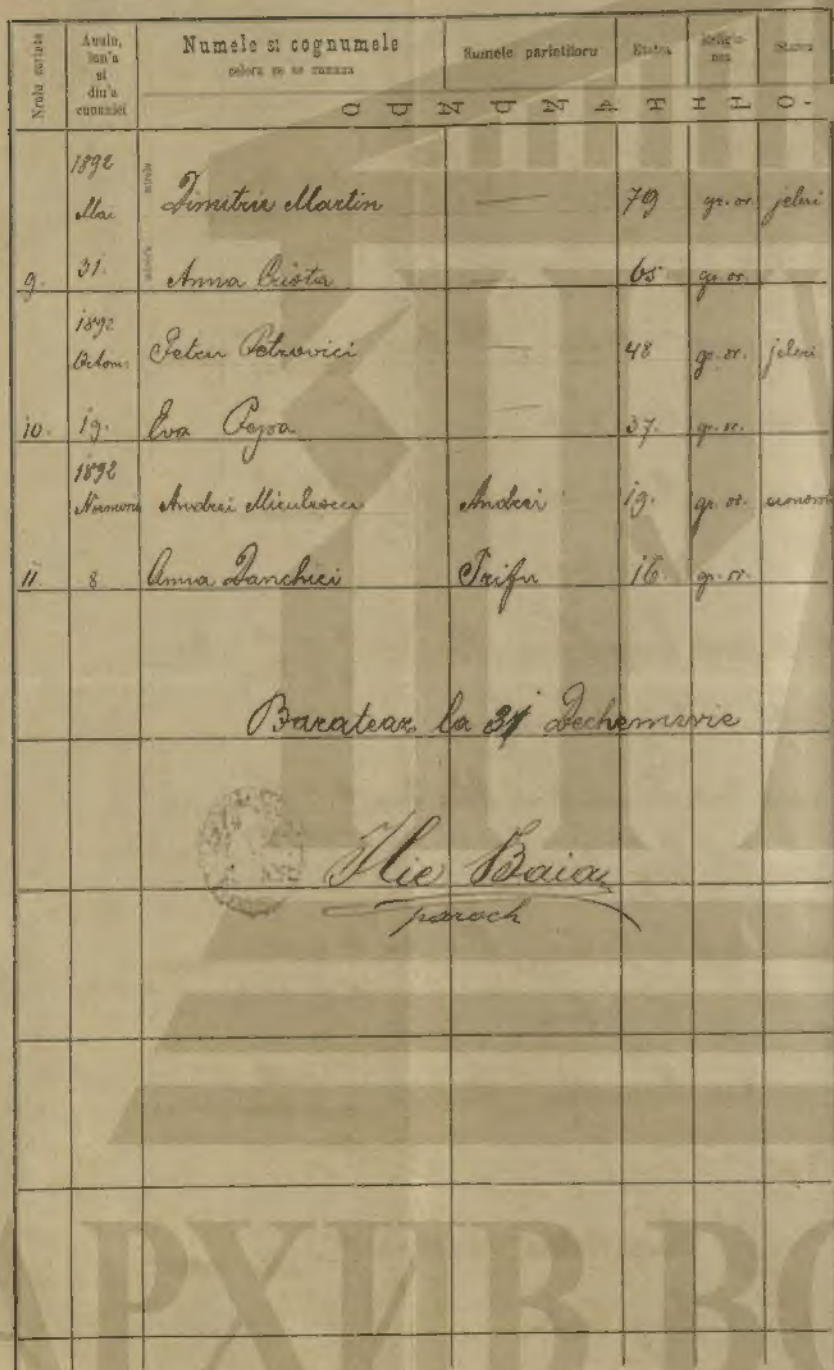 Nrulu
Anulu, lun'a si diu'a cununiei
Numele si cognumele
celoru ce se cununa
Numele parintiloru
Etatea
Religiunea
Starea
CUNUNATILO-
1892
Mai
mirele
Dimitrie Martin
—
79
gr. or.
jeleri
9.
31.
miresa
Anna Crista
65
gr. or.
1892
Octom
Petru Petrovici
—
48
gr. or.
jeleri
10.
19.
Eva Popa
—
37.
gr. or.
1892
Andrei
Andrei
19.
gr. or.
11.
8
Anna Danchici
Trifu
16
gr. or.
la 31 Dechemvrie
Ilie
paroch
АРХИВ ВО